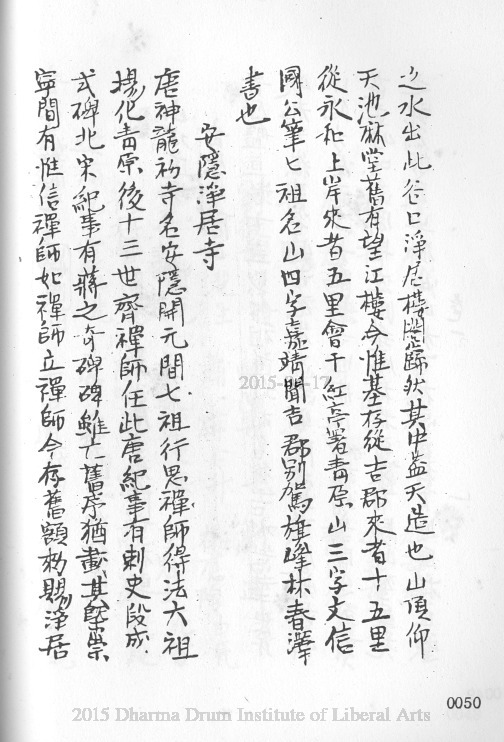 之水出此谷口淨居樓閣巋然其中蓋天造也山頂仰
天池麻堂舊有望江樓今惟基存從吉郡來者十五里
從永和上岸來者五里會于紅亭署青原山三字文信
國公筆七祖名山四字嘉靖間吉郡別駕旗峰林春澤
書也
安隱淨居寺
唐神龍初寺名安隱開元間七祖行思禪師得法六祖
揚化青原後十三世齊禪師住此唐紀事有刺史段成
式碑北宋紀事有蔣之奇碑碑雖亡舊序猶載其槩崇
寧間有惟信禪師如禪師立禪師今存舊額勑賜淨居
2015-
-17
0050
2015 Dharma Drum Institute of Liberal Arts